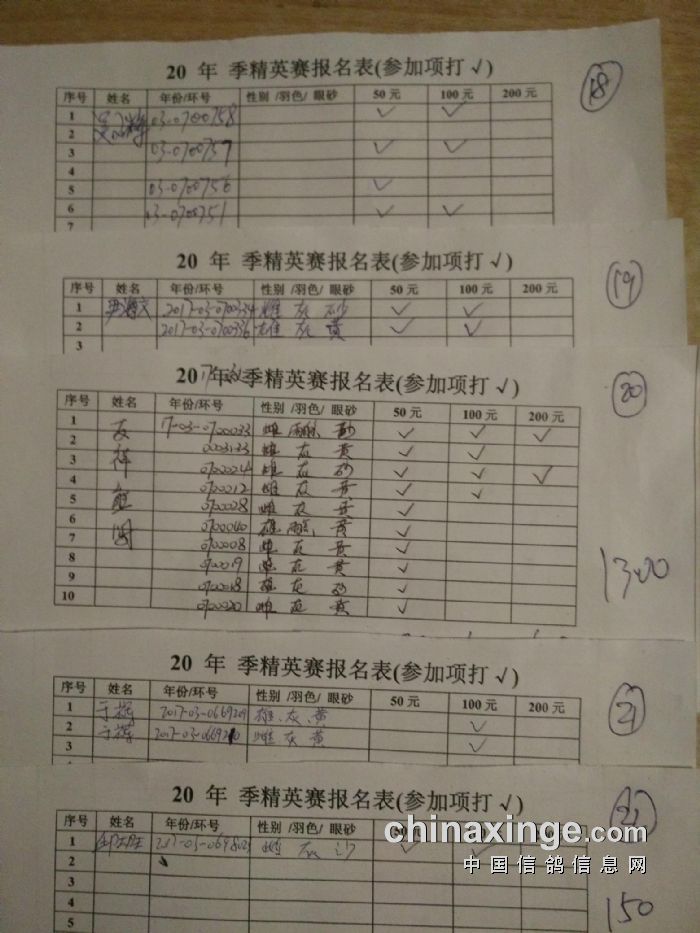 20 年 季精英赛报名表(参加项打 √)
18
序号 姓名 年份/环号 性别 /羽色/ 眼砂 50 元 100 元 200 元
1 03-0700758 √ √
2
3 03-0700757 √ √
4
5 03-0700756 √
6 03-0700751 √ √
7
20 年 季精英赛报名表(参加项打 √)
19
序号 姓名 年份/环号 性别 /羽色/ 眼砂 50 元 100 元 200 元
1 2017-03-0700334 雌 灰 砂 √ √
2 2017-03-0700336 雄 灰 黄 √ √
3
2017年 季精英赛报名表(参加项打 √)
20
序号 姓名 年份/环号 性别 /羽色/ 眼砂 50 元 100 元 200 元
1 友 17-03-0700033 雌 雨点 砂 √ √ √
2 003133 雌 灰 黄 √ √
3 祥 0700024 雌 灰 砂 √ √ √
4 0700012 雌 灰 黄 √ √
5 0700028 雌 灰 黄 √
6 0700040 雄 黄 √
7 0700008 雌 灰 黄 √
8 0700019 雌 灰 黄 √
9 0700018 雄 灰 砂 √
10 0700020 雌 灰 黄 √
1300
20 年 季精英赛报名表(参加项打 √)
21
序号 姓名 年份/环号 性别 /羽色/ 眼砂 50 元 100 元 200 元
1 于辉 2017-03-0669209 雄 灰 黄 √
2 于辉 2017-03-0669210 雌 灰 黄 √
3
20 年 季精英赛报名表(参加项打 √)
序号 姓名 年份/环号 性别 /羽色/ 眼砂 50元
1 灰 沙 √ √
2
3
4
5
150
chinaxinge.com
中国信鸽信息网